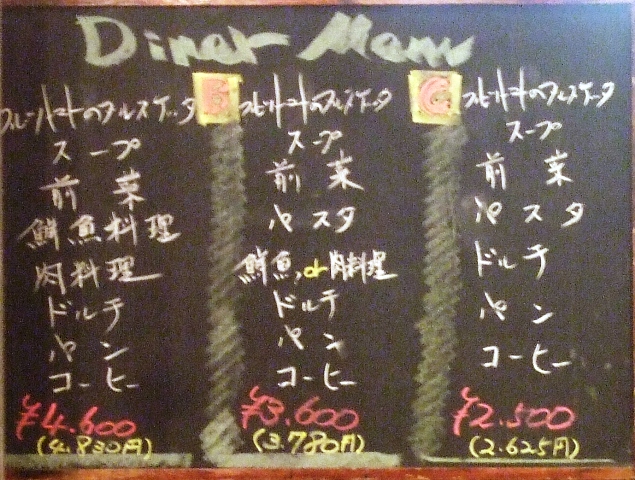 Diner Menu
フルーツトマトのブルスケッタ
スープ
前菜
鮮魚料理
肉料理
ドルチ
パン
コーヒー
¥4.600
(4.830円)
B
フルーツトマトのブルスケッタ
スープ
前菜
パスタ
鮮魚,or肉料理
ドルチ
パン
コーヒー
¥3.600
(3.780円)
C
フルーツトマトのブルスケッタ
スープ
前菜
パスタ
ドルチ
パン
コーヒー
¥2.500
(2.625円)